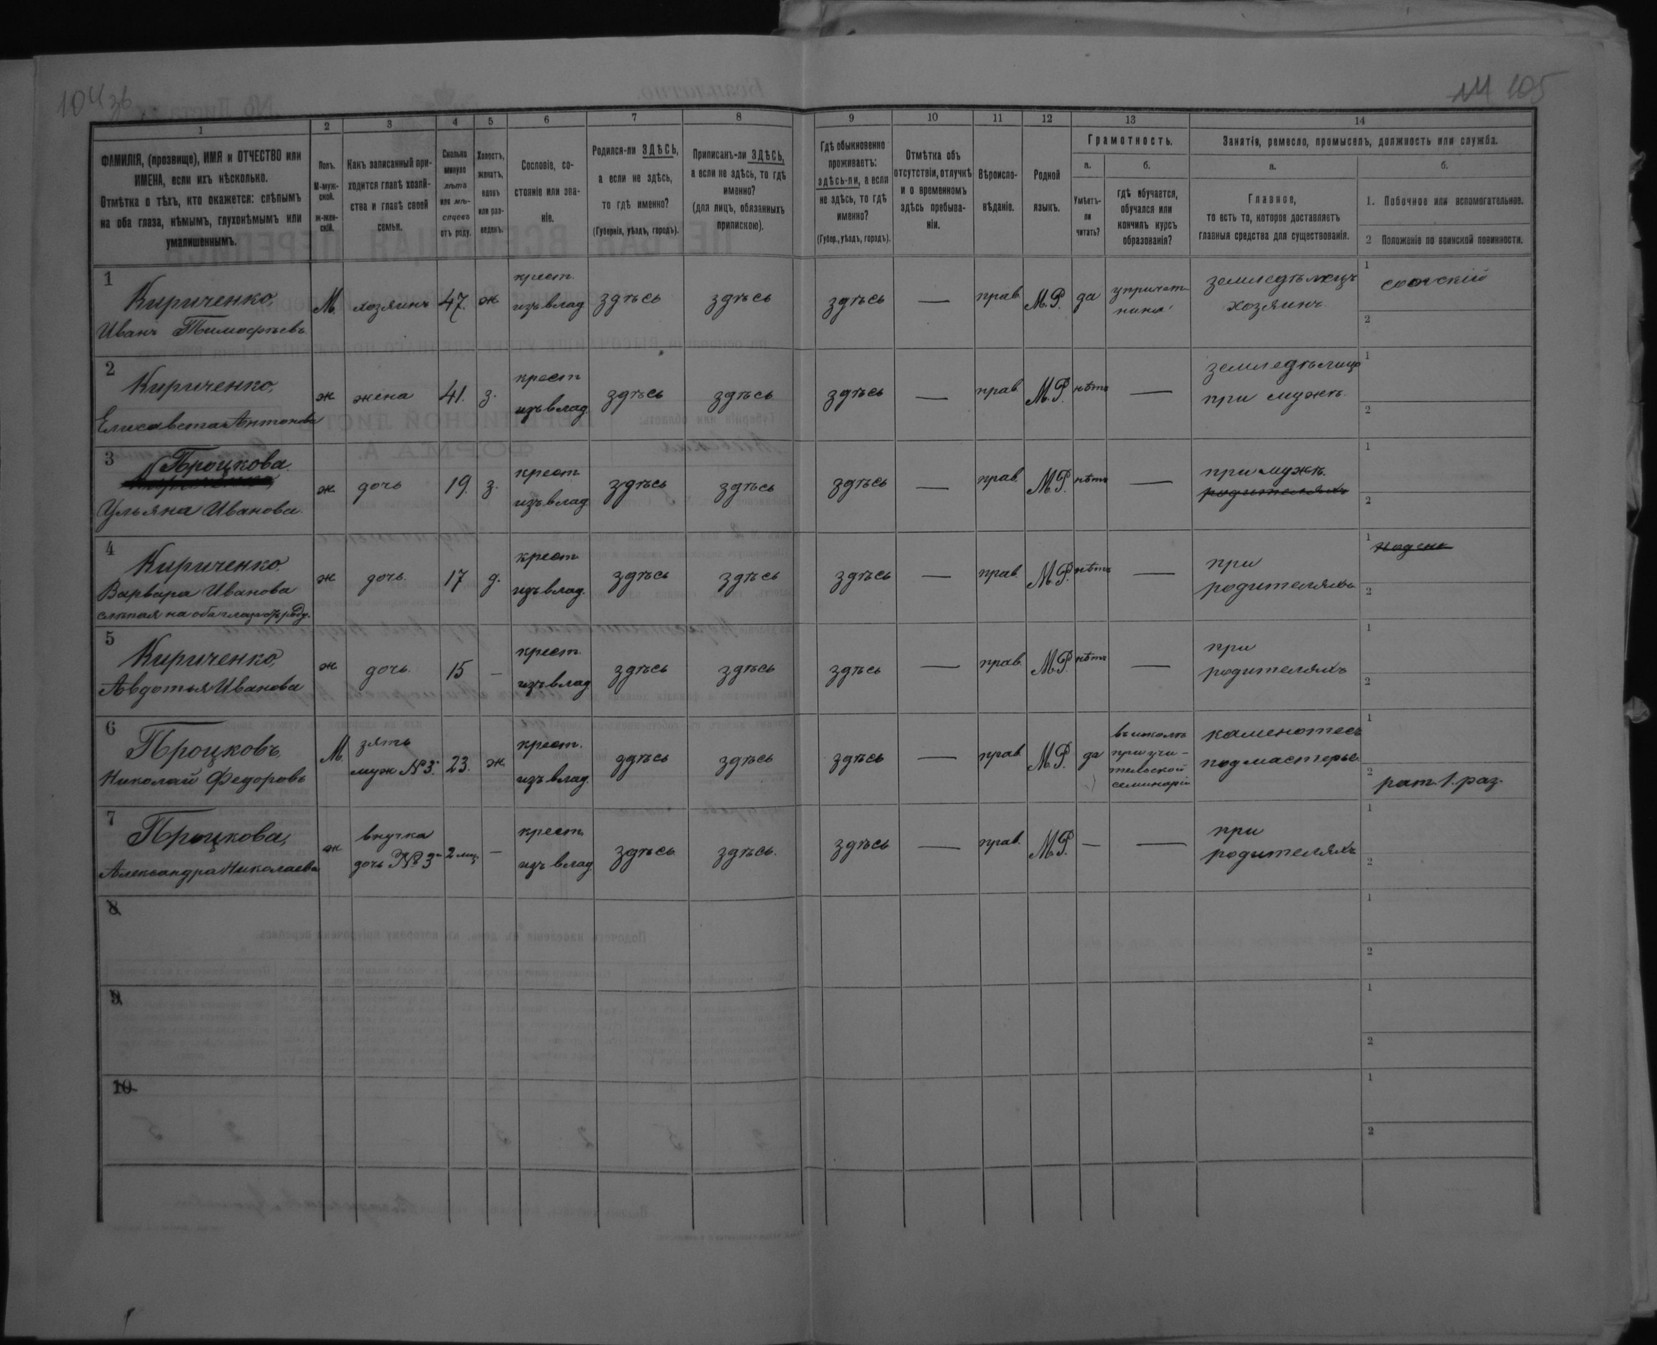 104 зв
105
1
2
3
4
5
6
7
8
9
10
11
12
13
14
ФАМИЛІЯ, (прозвище), ИМЯ и ОТЧЕСТВО или
ИМЕНА, если ихъ нѣсколько.
Отмѣтка о тѣхъ, кто окажется: слѣпымъ
на оба глаза, нѣмымъ, глухонѣмымъ или
умалишеннымъ.
Полъ.
М-муж-
ской.
ж-жен-
скій.
Какъ записанный при-
ходится главѣ хозяй-
ства и главѣ своей
семьи.
Сколько
минуло
лѣтъ
или мѣ-
сяцевъ
отъ роду.
Холостъ,
женатъ,
вдовъ
или раз-
веденъ.
Сословіе, со-
стояніе или зва-
ніе.
Родился-ли ЗДѢСЬ,
а если не здѣсь,
то гдѣ именно?
(Губернія, уѣздъ, городъ).
Приписанъ-ли ЗДѢСЬ,
а если не здѣсь, то гдѣ
именно?
(для лицъ, обязанныхъ
припискою).
Гдѣ обыкновенно
проживаетъ:
здѣсь-ли, а если
не здѣсь, то гдѣ
именно?
(Губер., уѣздъ, городъ).
Отмѣтка объ
отсутствіи, отлучкѣ
и о временномъ
здѣсь пребыва-
ніи.
Вѣроиспо-
вѣданіе.
Родной
языкъ.
Грамотность.
а.
б.
Умѣетъ-
ли
читать?
гдѣ обучается,
обучался или
кончилъ курсъ
образованія?
Занятіе, ремесло, промыселъ, должность или служба.
а.
б.
Главное,
то есть то, которое доставляетъ
главныя средства для существованія.
1. Побочное или вспомогательное.
2 Положеніе по воинской повинности.
1
Кириченко,
Иванъ Тимофѣевъ
М.
хозяинъ
47.
ж
крест
изъ влад
здѣсь
здѣсь
здѣсь
—
прав.
М.Р.
да
земледѣлецъ
хозяинъ
1
сотскій
2
2
Кириченко,
Елисавета Антонова
ж
жена
41.
з.
крест
изъ влад
здѣсь
здѣсь
здѣсь
—
прав.
М.Р.
нѣтъ
—
при мужѣ.
1
2
3
Процкова
Ульяна Иванова
ж
дочь
19.
з.
крест
изъ влад
здѣсь
здѣсь
здѣсь
—
прав.
М.Р.
нѣтъ
—
при мужѣ
родителяхъ
1
2
4
Кириченко
Варвара Иванова
слѣпая на оба глаза отъ роду.
ж
дочь.
17
д.
крест
изъ влад.
здѣсь
здѣсь
здѣсь
—
прав.
М.Р.
нѣтъ
—
при
родителяхъ
1
2
5
Кириченко,
Авдотья Иванова
ж
дочь.
15
—
крест
изъ влад
здѣсь
здѣсь
здѣсь
—
прав.
М.Р.
нѣтъ
—
при
родителяхъ
1
2
6
Процковъ,
Николай Федоровъ
М.
зять
муж №3.
23.
ж
крест.
изъ влад
здѣсь
здѣсь
здѣсь
—
прав
М.Р.
да
въ школѣ
при учи-
тельской
семинаріи
каменотесъ
подмастерье
1
2
рат. 1. раз.
7
Процкова,
Александра Николаева
ж
внучка
дочь №3й
2 мц.
—
крест.
изъ влад
здѣсь
здѣсь.
здѣсь
—
прав.
М.Р.
—
—
при
родителяхъ
1
2
8
1
2
9
1
2
10
1
2